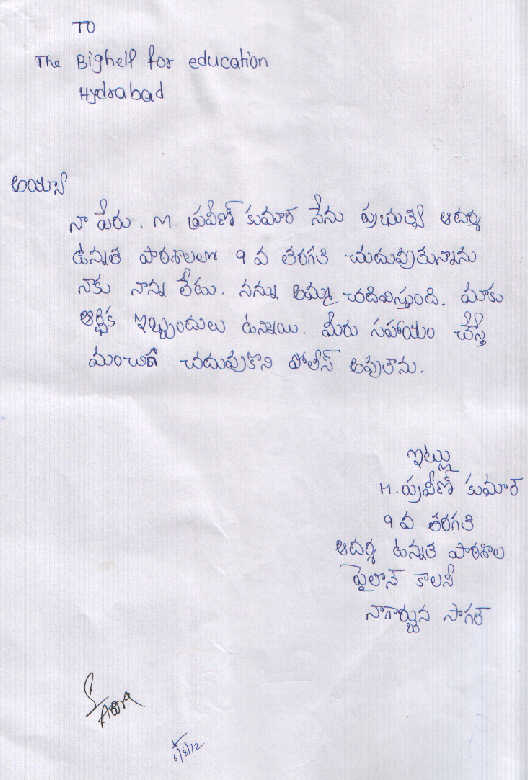 TO
The Bighelf for education
Hydrabad
అయ్యా
నా పేరు. M. ప్రవీణ్ కుమార్ నేను ప్రభుత్వ ఆదర్శ
ఉన్నత పాఠశాలలో 9 వ తరగతి చదువుతున్నాను
నాకు నాన్న లేరు. నన్ను అమ్మ చదివిస్తుంది. మాకు
ఆర్థిక ఇబ్బందులు ఉన్నాయి. మీరు సహాయం చేస్తే
మంచిగా చదువుకొని పోలీస్ అవుతాను.
ఇట్లు
M. ప్రవీణ్ కుమార్
9 వ తరగతి
ఆదర్శ ఉన్నత పాఠశాల
పైలాన్ కాలనీ
నాగార్జున సాగర్